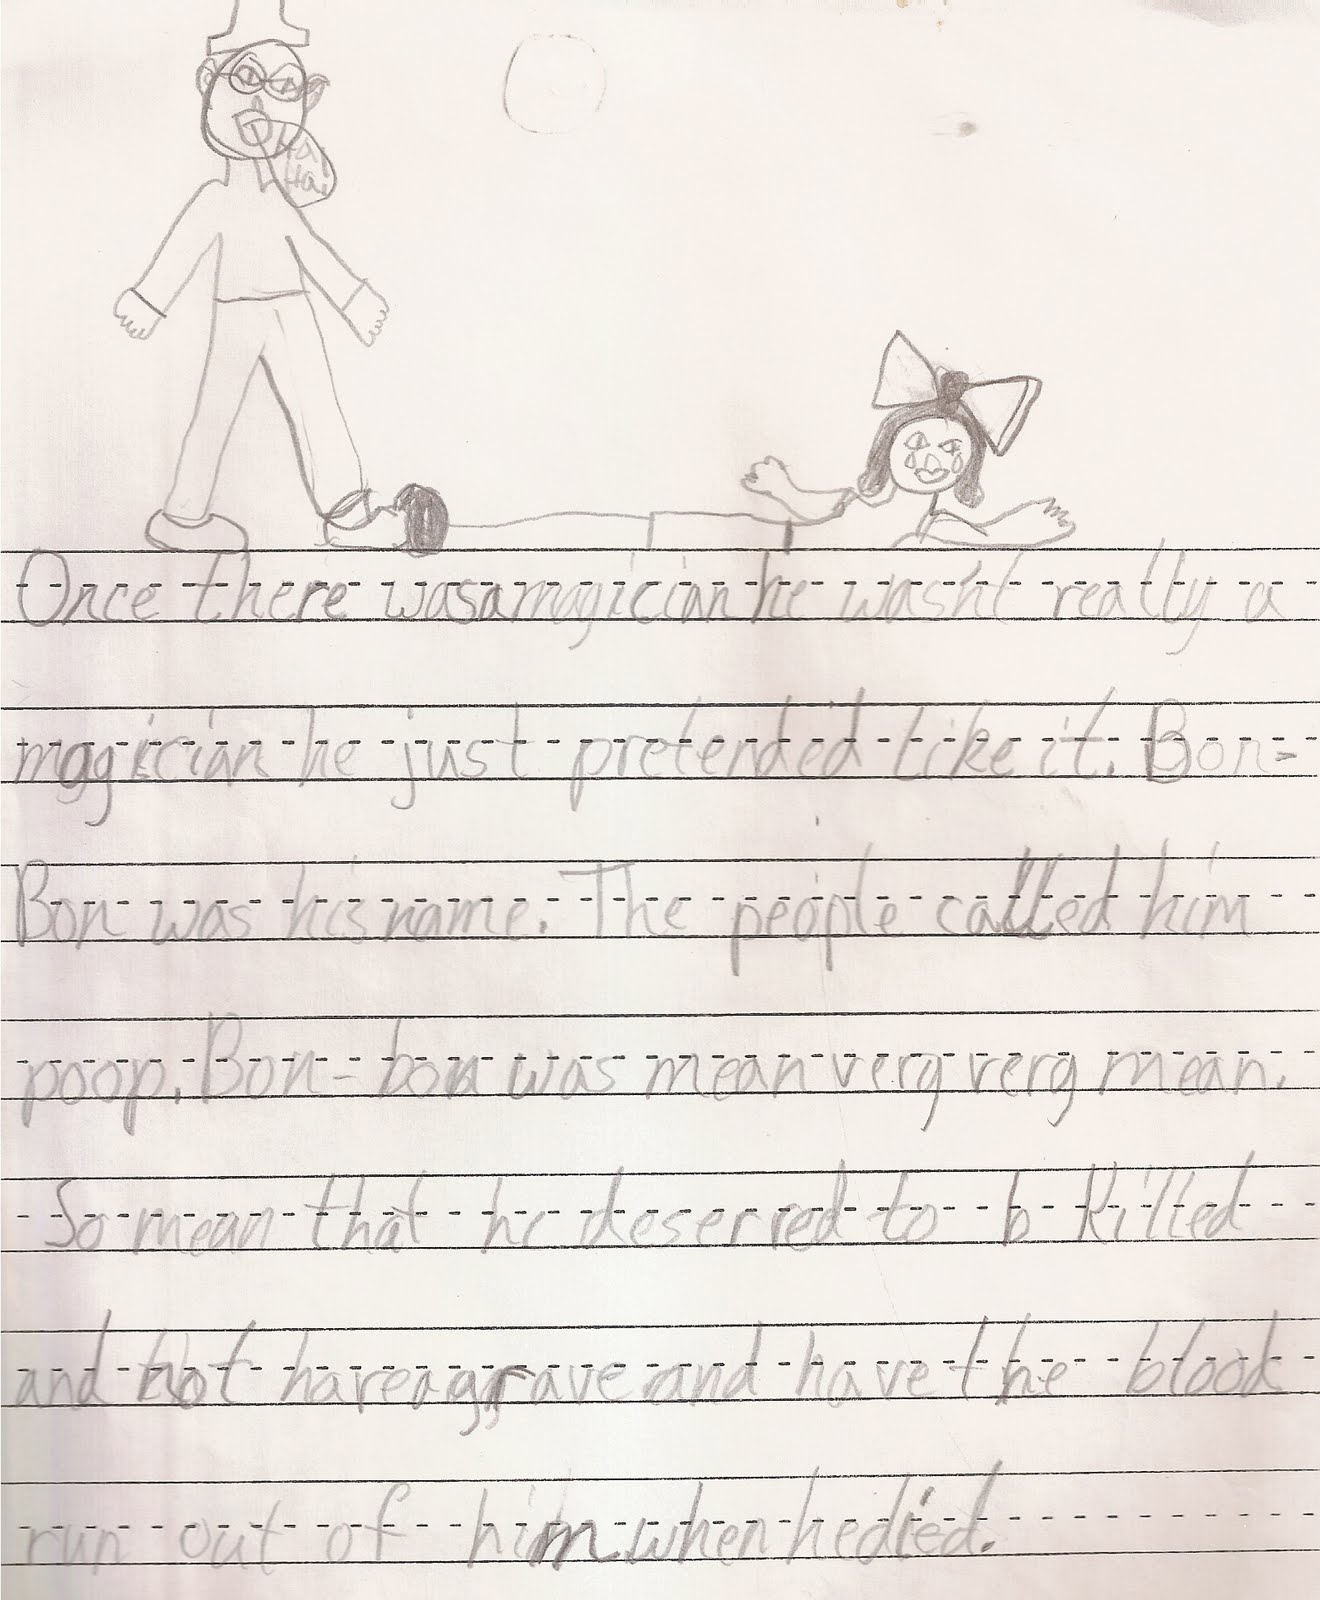 Ha
Ha!
Once there was a magician he wasn't really a
magician he just pretended like it. Bon-
Bon was his name. The people called him
poop. Bon-bon was mean very very mean.
So mean that he deserved to b killed
and not have a grave and have the blood
run out of him when he died.